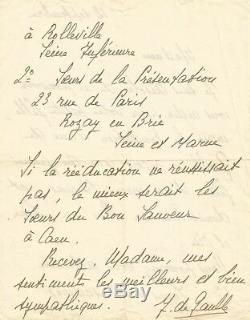 à Rolleville
Seine Inférieure
2° Sœurs de la Présentation
23 rue de Paris
Rozay en Brie
Seine et Marne
Si la rééducation ne réussissait
pas, le mieux serait les
Sœurs du Bon Sauveur
à Caen.
Recevez, Madame, mes
sentiments les meilleurs et bien
sympathiques. Y. de Gaulle